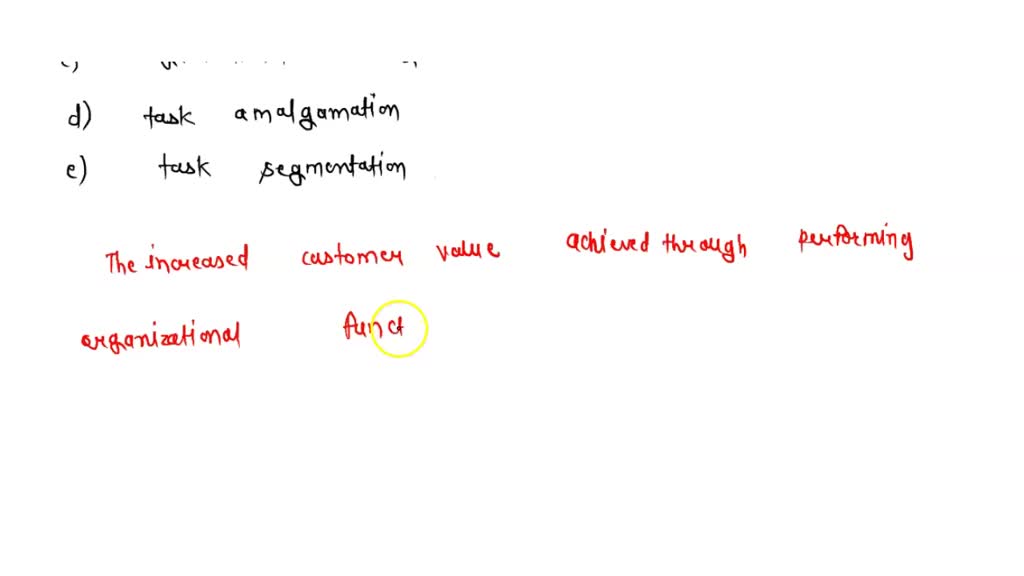 d) task amalgamation
e) task segmentation
The increased customer value achieved through performing
organizational funct